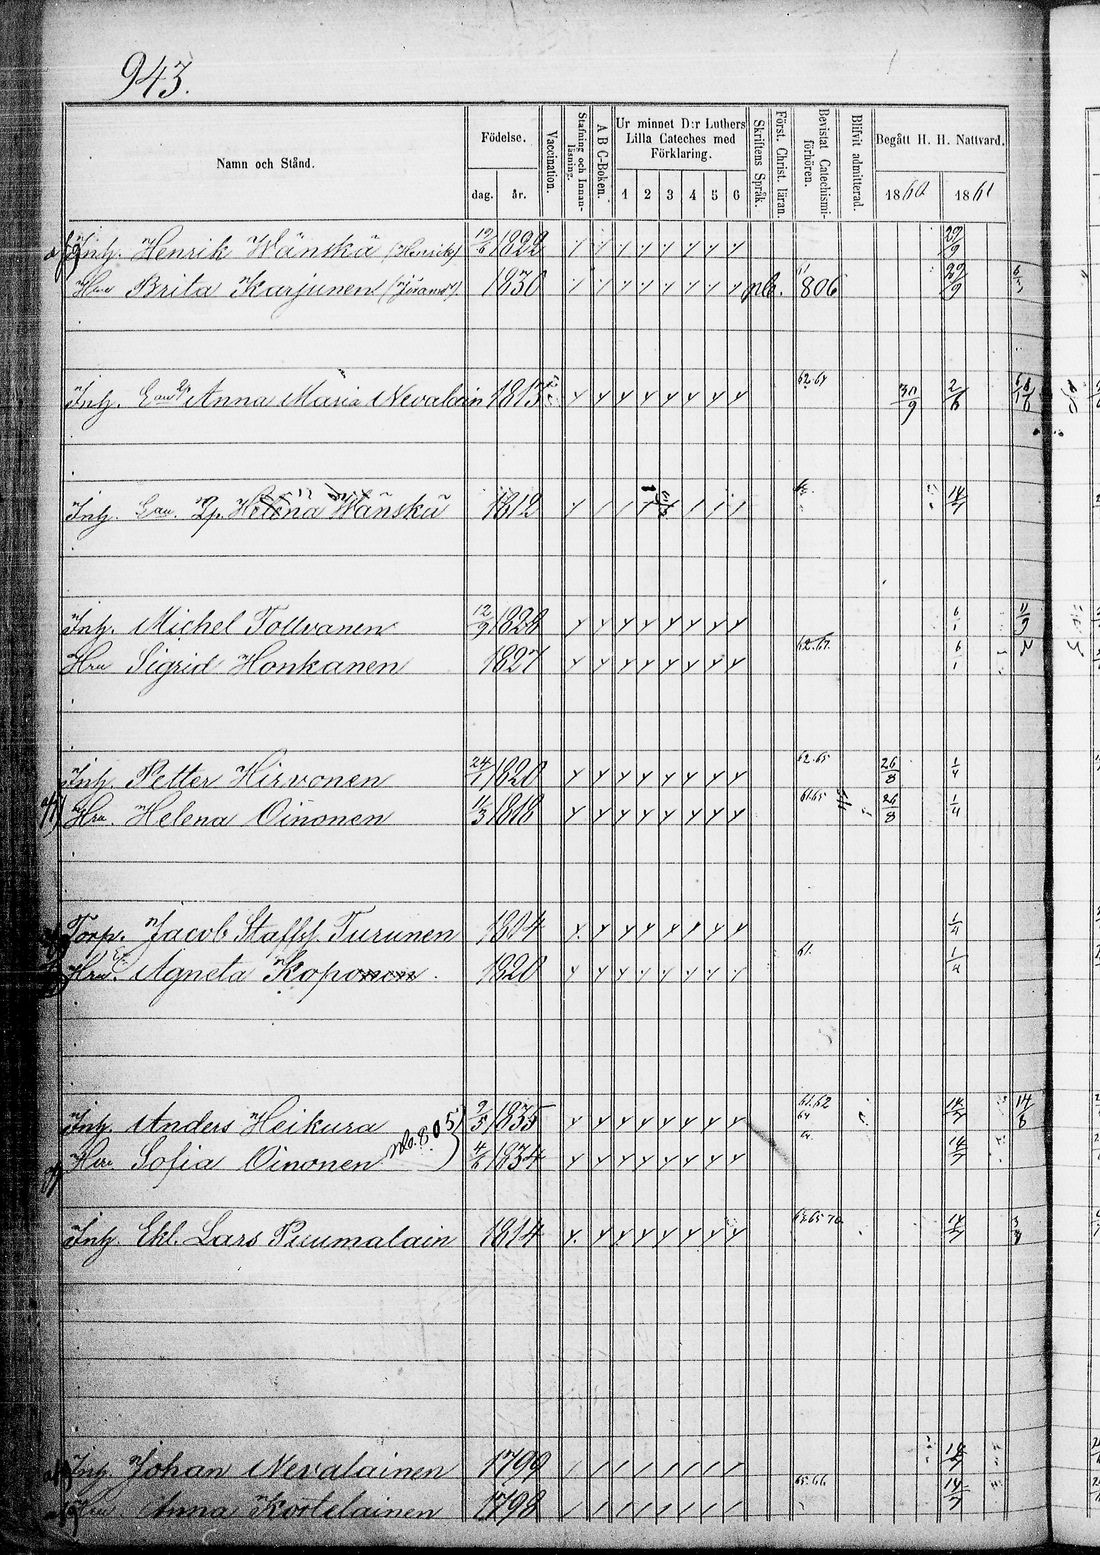 943.
Namn och Stånd. Födelse. Vaccination. Stafning och Innanläsning. A B C-Boken. Ur minnet D:r Luthers Lilla Cateches med Förklaring. Skriftens Språk. Först. Christ. läran. Bevistat Catechismiförhören. Blifvit admitterad. Begått H. H. Nattvard.
dag. år. 1 2 3 4 5 6 1860 1861
Inh. Henrik Wänskä (Henriks) 1822 29/9
Hru Brita Karjunen 1830 806 29/9
Inh. Anna Maria Nevalain 1813 62.67 30/9 2/6
Inh. Helena Wänskä 1812 14/7
Inh. Michel Tollvanen 12/9 1828 6/1 11/9
Hru Sigrid Honkanen 1827 62.67. 6/1
Inh. Petter Hirvonen 24/1 1820 62.65 26/8 1/4
Hru. Helena Oinonen 11/3 1818 61.65 26/8 1/4
Torp. Jacob Staffs. Turunen 1804 1/4
Hru. Agneta Koponen 1820 61. 1/4
Inh. Anders Heikura 2/5 1835 61.62 64 14/7 14/6
Hru Sofia Oinonen 805 4/6 1834 14/7
Inh. Ekl. Lars Puumalain 1814 14/7
Inh. Johan Nevalainen 1799 14/7
Hru Anna Kortelainen 1798 65.66 14/7